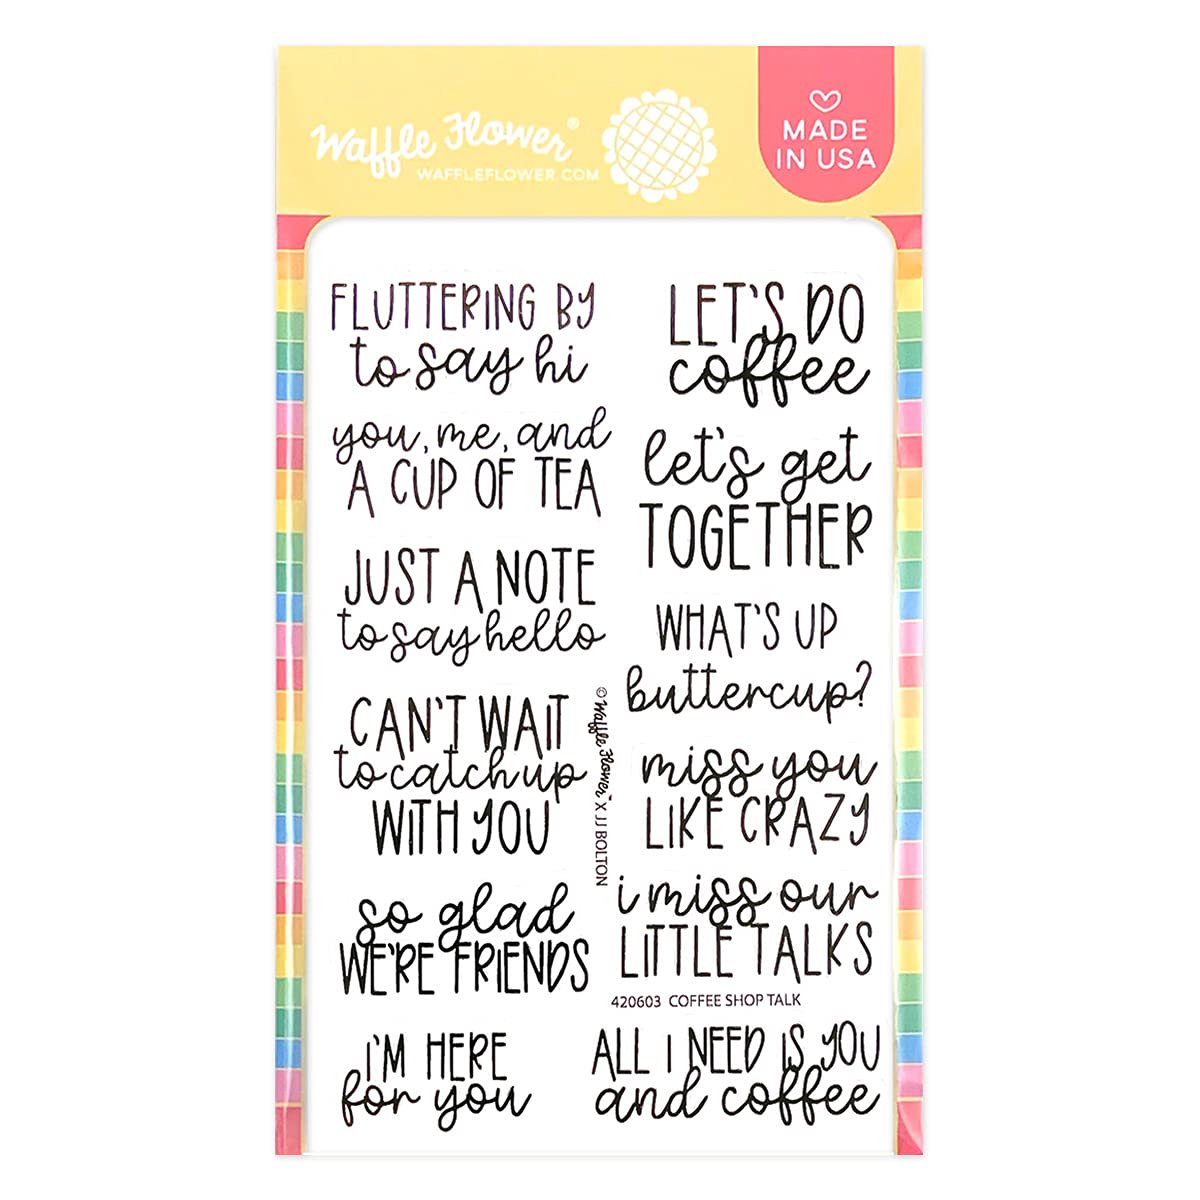 Waffle Flower®
WAFFLEFLOWER.COM
MADE
IN USA
FLUTTERING BY
to say hi
you, me, and
A CUP OF TEA
JUST A NOTE
to say hello
CAN'T WAIT
to catch up
WITH YOU
so glad
WE'RE FRIENDS
I'M HERE
for you
LET'S DO
coffee
let's get
TOGETHER
WHAT'S UP
buttercup?
miss you
LIKE CRAZY
i miss our
LITTLE TALKS
420603 COFFEE SHOP TALK
ALL I NEED IS YOU
and coffee
© Waffle Flower™ X JJ BOLTON